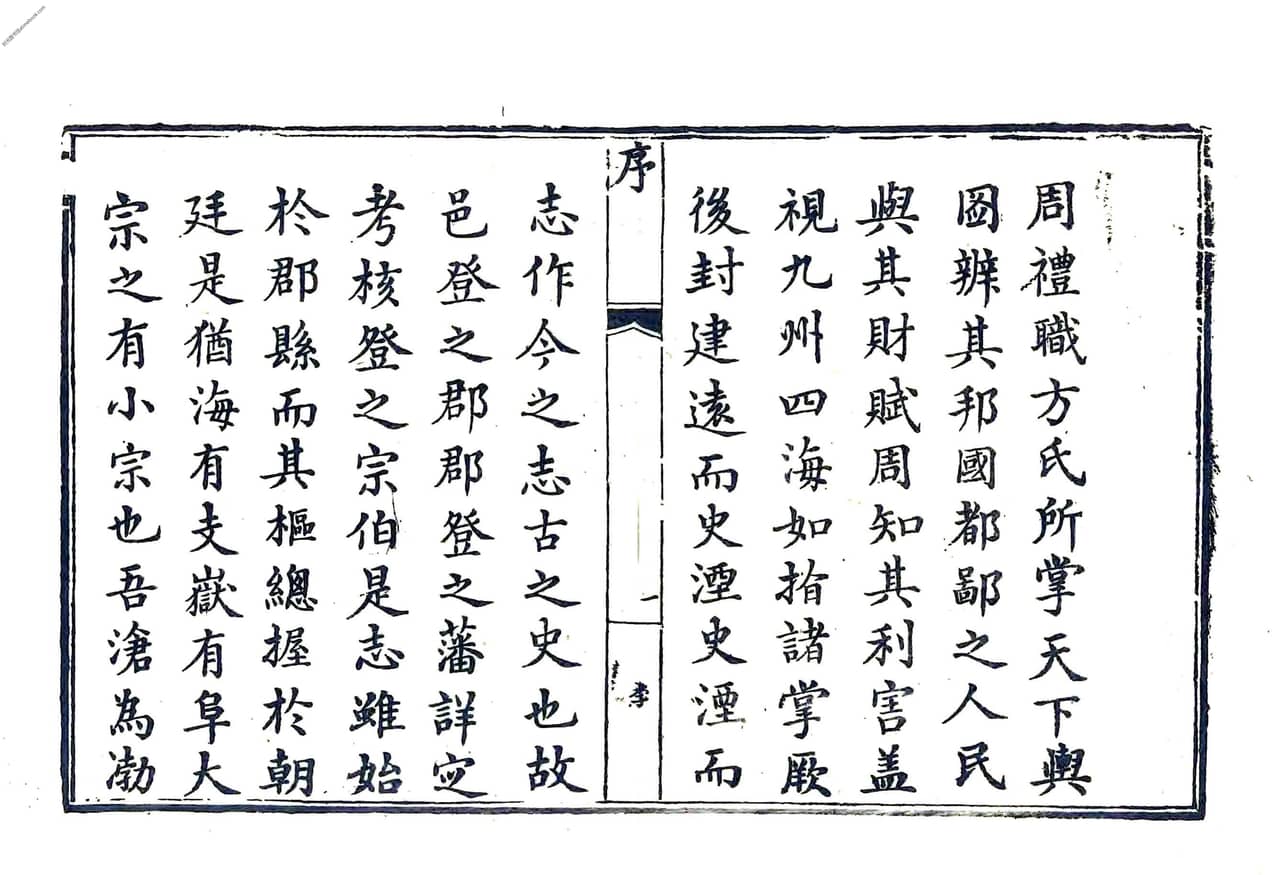 周禮職方氏所掌天下輿
圖辨其邦國都鄙之人民
與其財賦周知其利害盖
視九州四海如指諸掌厥
後封建遠而史湮史湮而
序
一
李
志作今之志古之史也故
邑登之郡郡登之藩詳定
考核登之宗伯是志雖始
於郡縣而其樞總握於朝
廷是猶海有支嶽有阜大
宗之有小宗也吾滄為渤